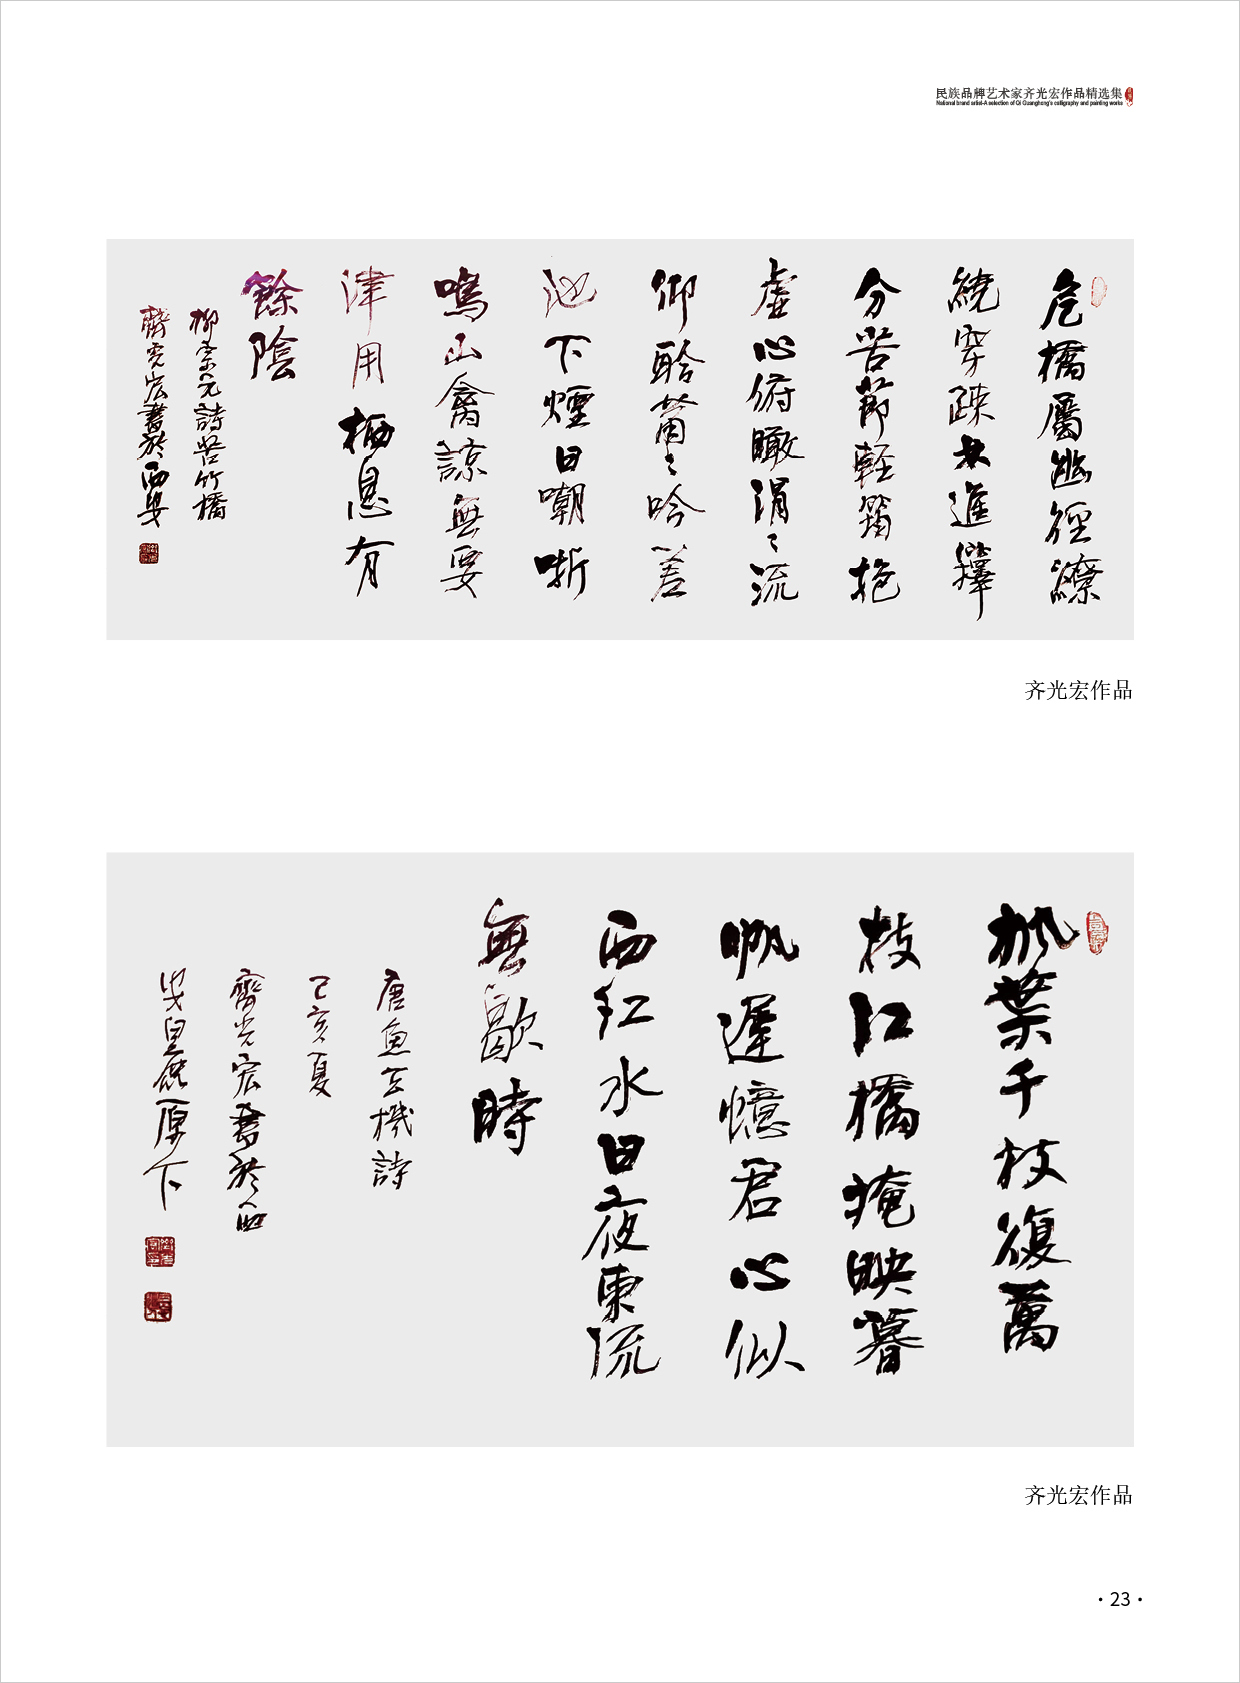 民族品牌艺术家齐光宏作品精选集
National brand artist-A selection of Qi Guanghong's calligraphy and painting works
危橋屬幽徑繚
繞穿疎林進籜
分苦節輕筠抱
虛心俯瞰涓〻流
仰聆蕭〻吟差
池下煙日嘲哳
鳴山禽諒無要
津用栖息有
餘陰
柳宗元詩苦竹橋
齊光宏書於西安
齐光宏作品
楓葉千枝復萬
枝江橋掩映暮
帆遲憶君心似
西江水日夜東流
無歇時
唐魚玄機詩
己亥夏
齊光宏書於西
安白鹿原下
齐光宏作品
·23·